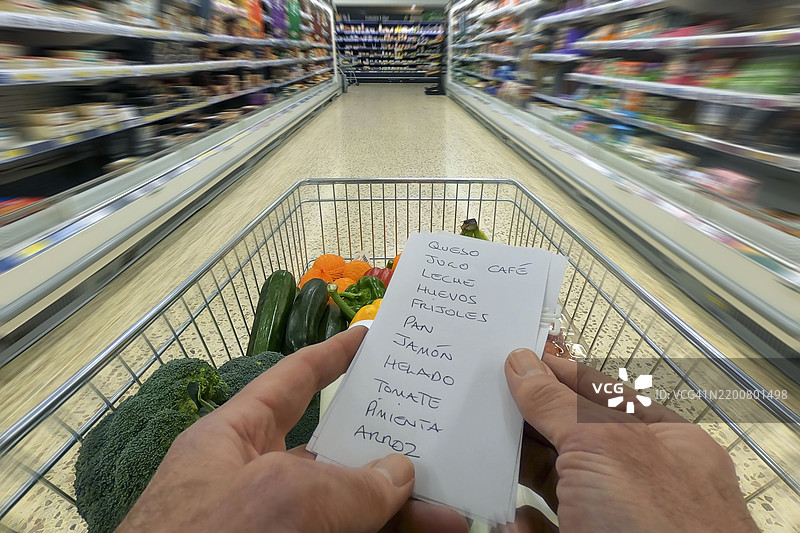 QUESO
JUGO CAFÉ
LECHE
HUEVOS
FRIJOLES
PAN
JAMÓN
HELADO
TOMATE
PIMIENTA
ARROZ
VCG
VCG41N2200801498